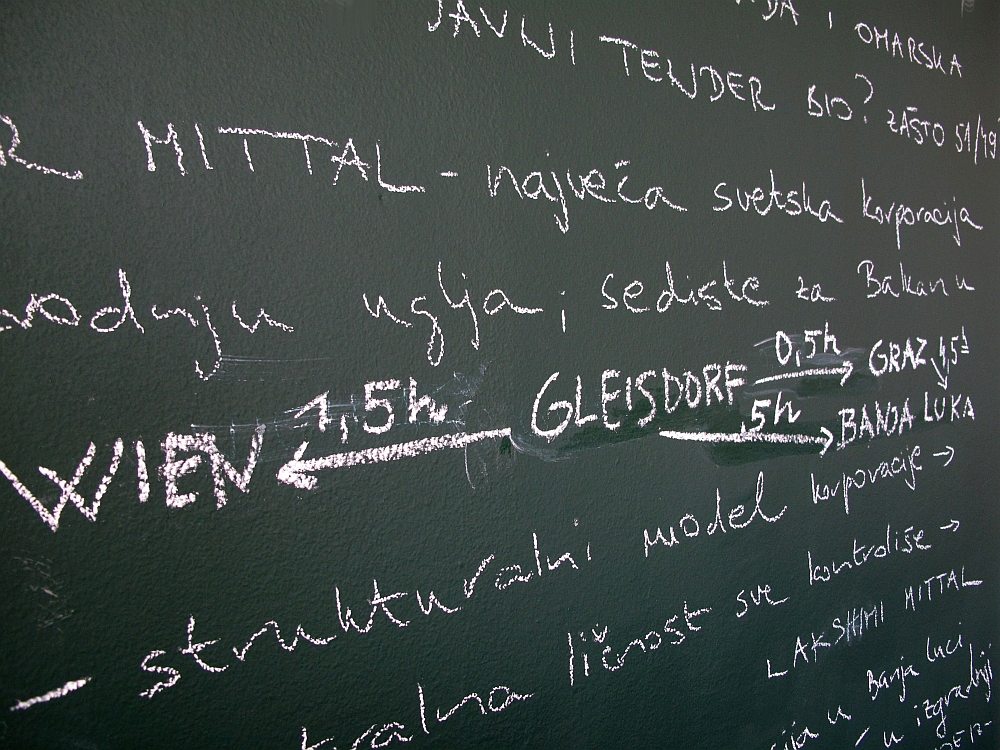 I OMARSKA
JAVNI TENDER BIO? ZAŠTO 51/49
R MITTAL - najveća svetska korporacija
uglja; sedište za Balkan u
WIEN ← 1,5h GLEISDORF 0,5h → GRAZ 4,5h
5h → BANJA LUKA
- strukturalni model korporacije →
ličnost sve kontroliše →
LAKSHMI MITTAL
u Banja Luci
u izgradnji